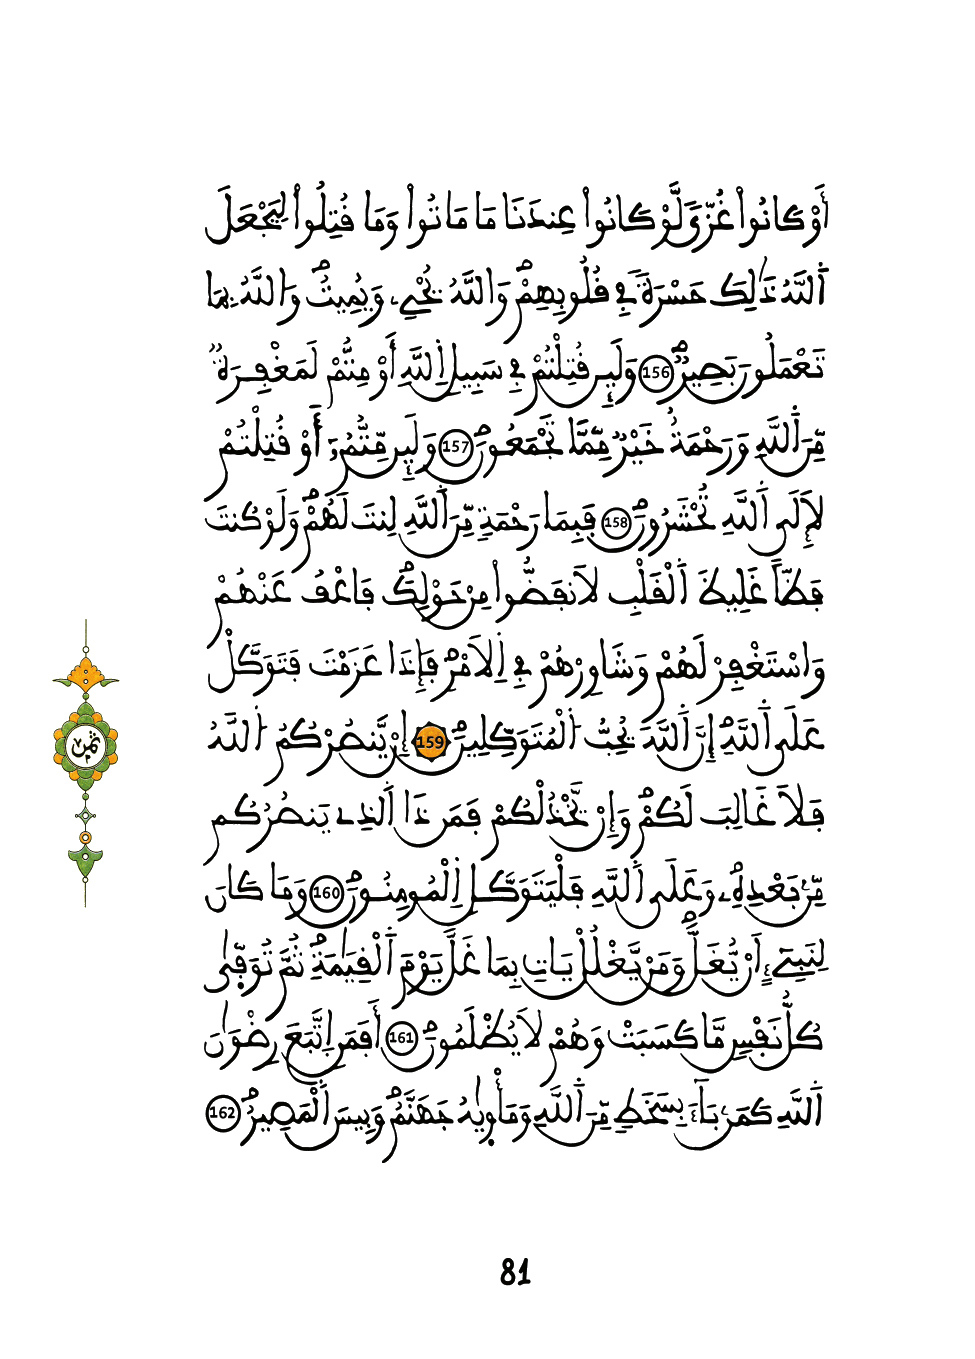 أَوْ كَانُوا۟ غُزّىٗ لَّوْ كَانُوا۟ عِندَنَا مَا مَاتُوا۟ وَمَا قُتِلُوا۟ لِيَجْعَلَ
اَ۬للَّهُ ذَٰلِكَ حَسْرَةٗ فِے قُلُوبِهِمْۖ وَاللَّهُ يُحْيِۦ وَيُمِيتُۖ وَاللَّهُ بِمَا
تَعْمَلُونَ بَصِيرٞۖ 156 وَلَئِن قُتِلْتُمْ فِے سَبِيلِ اِ۬للَّهِ أَوْ مِتُّمْ لَمَغْفِرَةٞ
مِّنَ اَ۬للَّهِ وَرَحْمَةٌ خَيْرٞ مِّمَّا تَجْمَعُونَۖ 157 وَلَئِن مِّتُّمُۥٓ أَوْ قُتِلْتُمْ
لَإِلَى اَ۬للَّهِ تُحْشَرُونَۖ 158 فَبِمَا رَحْمَةٖ مِّنَ اَ۬للَّهِ لِنتَ لَهُمْۖ وَلَوْ كُنتَ
فَظّاً غَلِيظَ اَ۬لْقَلْبِ لَانفَضُّوا۟ مِنْ حَوْلِكَۖ فَاعْفُ عَنْهُمْ
وَاسْتَغْفِرْ لَهُمْ وَشَاوِرْهُمْ فِے اِ۬لَامْرِۖ فَإِذَا عَزَمْتَ فَتَوَكَّلْ
عَلَى اَ۬للَّهِۖ إِنَّ اَ۬للَّهَ يُحِبُّ اُ۬لْمُتَوَكِّلِينَۖ 159 إِنْ يَّنصُرْكُمُ اُ۬للَّهُ
فَلَا غَالِبَ لَكُمْۖ وَإِنْ يَّخْذُلْكُمْ فَمَن ذَا اَ۬لذِے يَنصُرُكُم
مِّنۢ بَعْدِهِۦۖ وَعَلَى اَ۬للَّهِ فَلْيَتَوَكَّلِ اِ۬لْمُومِنُونَۖ 160 وَمَا كَانَ
لِنَبِيٓءٍ اَنْ يُّغَلَّۖ وَمَنْ يَّغْلُلْ يَاتِ بِمَا غَلَّ يَوْمَ اَ۬لْقِيَٰمَةِۖ ثُمَّ تُوَفّ۪ىٰ
كُلُّ نَفْسٖ مَّا كَسَبَتْ وَهُمْ لَا يُظْلَمُونَۖ 161 أَفَمَنِ اِ۪تَّبَعَ رِضْوَٰنَ
اَ۬للَّهِ كَمَنۢ بَآءَ بِسَخَطٖ مِّنَ اَ۬للَّهِ وَمَأْو۪يٰهُ جَهَنَّمُۖ وَبِيسَ اَ۬لْمَصِيرُۖ 162
ثمن
81